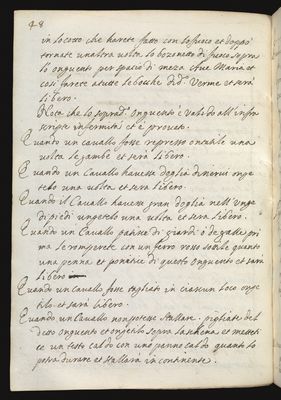 48
in loco che harete fatto con la fusea et doppo
tornate un'altra volta lo bozonetto di fuoco sopra
lo onguento per spatio di meza Ave Maria et
cosi farete a tutte le bocche di d.° Verme et sarà
libero.
Noto che lo soprad.° Onguento è valido all'infra
scripte infermità et è provato.
Quando un cavallo fosse represso ontatile una
volta le gambe et serà libero.
Quando un Cavallo havesse doglia di nervi onge
telo una volta et serà libero.
Quando il Cavallo havesse gran doglia nell'unge
di piedi ungetelo una volta et serà libero.
Quando un Cavallo patisse di giardi ò de galle pri
ma le romperete con un ferro rosso sotile quanto
una penna et ponerice di questo onguento et sarà
libero
Quando un cavallo fosse tagliato in ciascun loco onge
tilo et sarà libero.
Quando un Cavallo non potesse stallare. pigliate del
detto onguento et ongetilo sopra la schena et metteti
ce un testo caldo con uno panno caldo quanto lo
potrà durare et stallarà in continente.